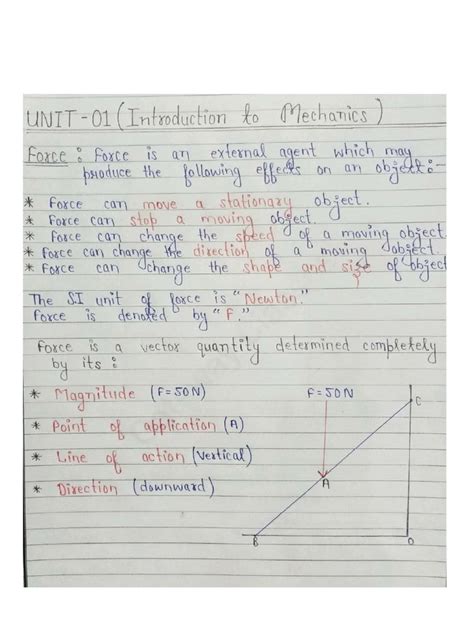 UNIT-01 (Introduction to Mechanics)
Force : Force is an external agent which may
produce the following effects on an object:-
* Force can move a stationary object.
* Force can stop a moving object.
* Force can change the speed of a moving object.
* Force can change the direction of a moving object.
* Force can change the shape and size of object
The S.I unit of force is "Newton."
Force is denoted by "F."
Force is a vector quantity determined completely
by its :
* Magnitude (F=50N)
F=50N
C
* Point of application (A)
* Line of action (Vertical)
* Direction (downward)
A
B